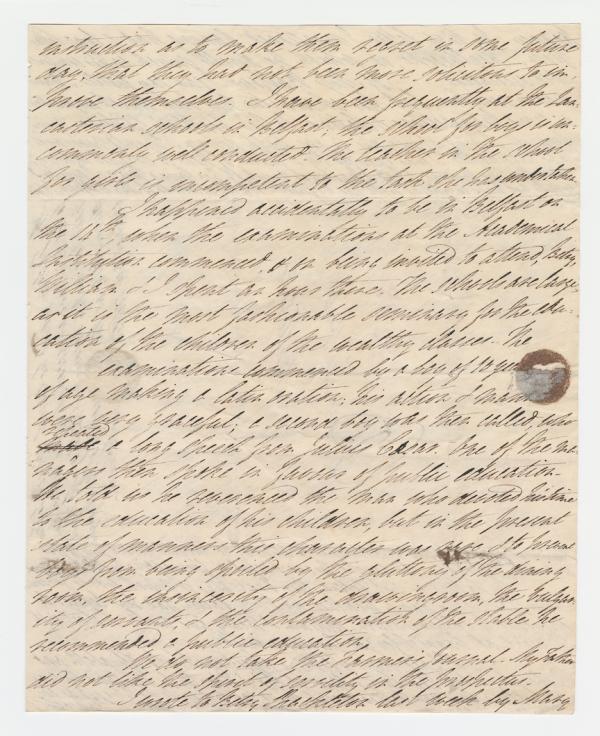 instruction as to make them regret in some future
day, that they had not been more solicitous to im-
prove themselves. I have been frequently at the Lan-
casterian schools in Belfast, the school for boys is un-
commonly well conducted. The teacher in the school
for girls is incompetent to the task she has undertaken
I happened accidentally to be in Belfast on
the 12th when the examinations at the Academical
Institution commenced, & on being invited to attend,
William & I spent an hour there. The schools are large
as it is the most fashionable seminary for the edu-
cation of the children of the wealthy classes. The
examinations commenced by a boy of 10 years
of age making a latin oration, his action & manner
were very graceful; a second boy was then called, who
recited a long speech from Julius Cesar. One of the ma-
nagers then spoke in favour of public education.
He told us he reverenced the man who devoted his time
to the education of his children, but in the present
state of manners this character was rare & to preserve
boys from being spoiled by the gluttony of the dining
room, the insincerity of the drawingroom, the vulgar-
ity of servants, & the contamination of the stable he
recommended a public education.
We do not take the Farmers Journal. My Father
did not like the spirit of in the prospectus.
I wrote to Betsy Shackleton last week by Mary